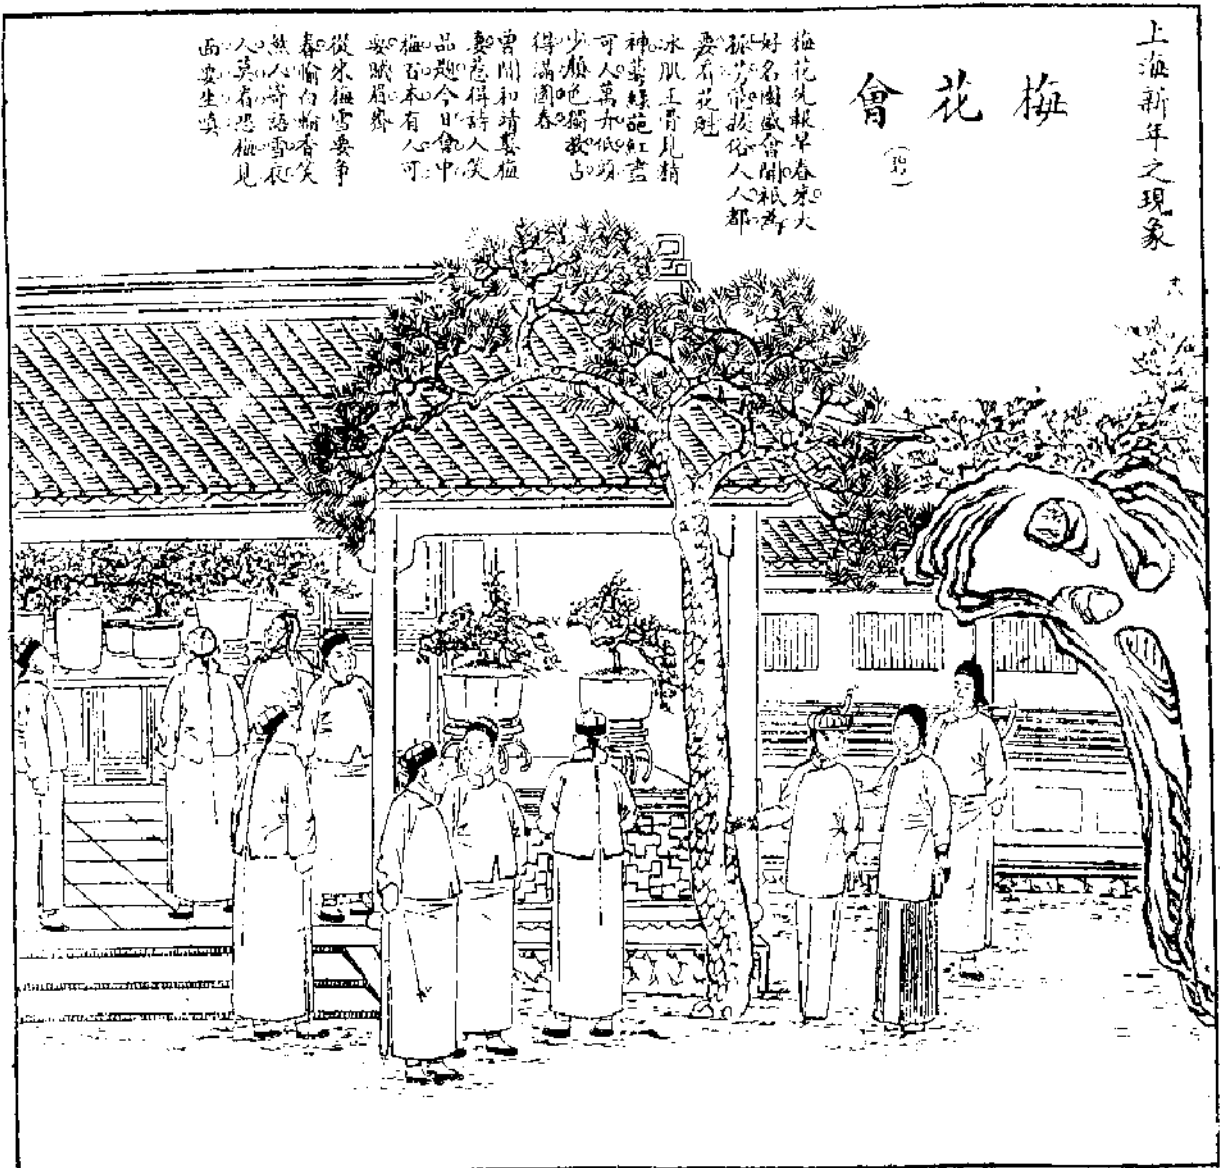 上海新年之現象
十八
梅花會
梅花先報早春來大
好名園盛會開祇為
孤芳能拔俗人人都
要看花魁
冰肌玉骨見精
神萼綠葩紅盡
可人萬卉低頭
少顏色獨教占
得滿園春
曾聞和靖娶梅
妻惹得詩人笑
品題今日會中
梅百本有人可
要賦眉齊
從來梅雪要爭
春喻白輸香笑
煞人寄語雪夜
人莫看恐梅見
面要生嗔